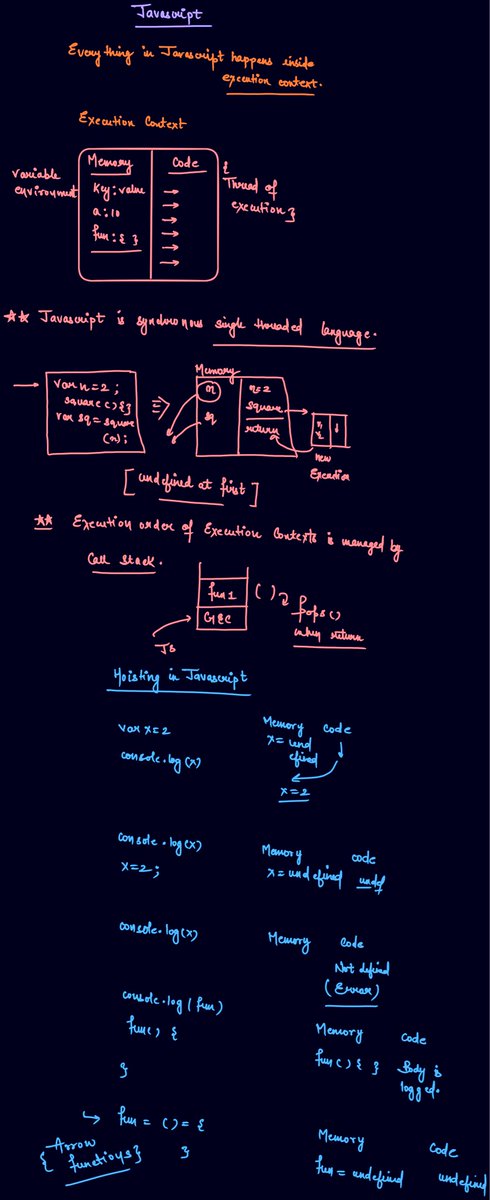 Javascript
Everything in Javascript happens inside
execution context.
Execution Context
Variable
environment
Memory
Code
Key: value
a: 10
fun: { }
{
Thread of
execution }
** Javascript is synchronous single threaded language.
var n = 2 ;
square ( ) { }
var sq = square
(n) ;
Memory
n
sq
n=2
square
return
new
Execution
[ undefined at first ]
** Execution order of Execution Contexts is managed by
Call Stack.
fun 1
GEC
( )
pops ( )
when return
Js
Hoisting in Javascript
var x = 2
console.log (x)
Memory code
x = und
efined
x = 2
console.log(x)
x = 2 ;
Memory code
x = undefined undef
console.log(x)
Memory code
Not defined
(Error)
console.log ( fun )
fun( ) {
}
Memory code
fun ( ) { } Body is
logged.
fun = ( ) = {
}
{ Arrow
functions }
Memory code
fun = undefined undefined